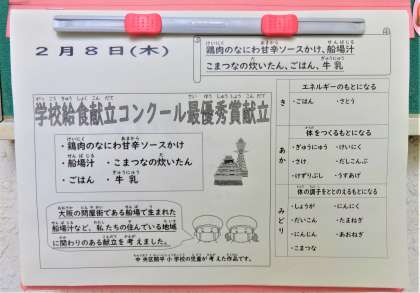 2月8日(木)
鶏肉のなにわ甘辛ソースかけ、船場汁
こまつなの炊いたん、ごはん、牛乳
学校給食献立コンクール最優秀賞献立
・鶏肉のなにわ甘辛ソースかけ
・船場汁 ・こまつなの炊いたん
・ごはん ・牛乳
大阪の問屋街である船場で生まれた
船場汁など、私たちの住んでいる地域
に関わりのある献立を考えました。
中央区開平小学校の児童が考えた作品です。
き
エネルギーのもとになる
・ごはん ・さとう
あか
体をつくるもとになる
・ぎゅうにゅう ・けいにく
・さけ ・だしこんぶ
・けずりぶし ・うすあげ
みどり
体の調子をととのえるもとになる
・しょうが ・にんにく
・だいこん ・たまねぎ
・にんじん ・あおねぎ
・こまつな